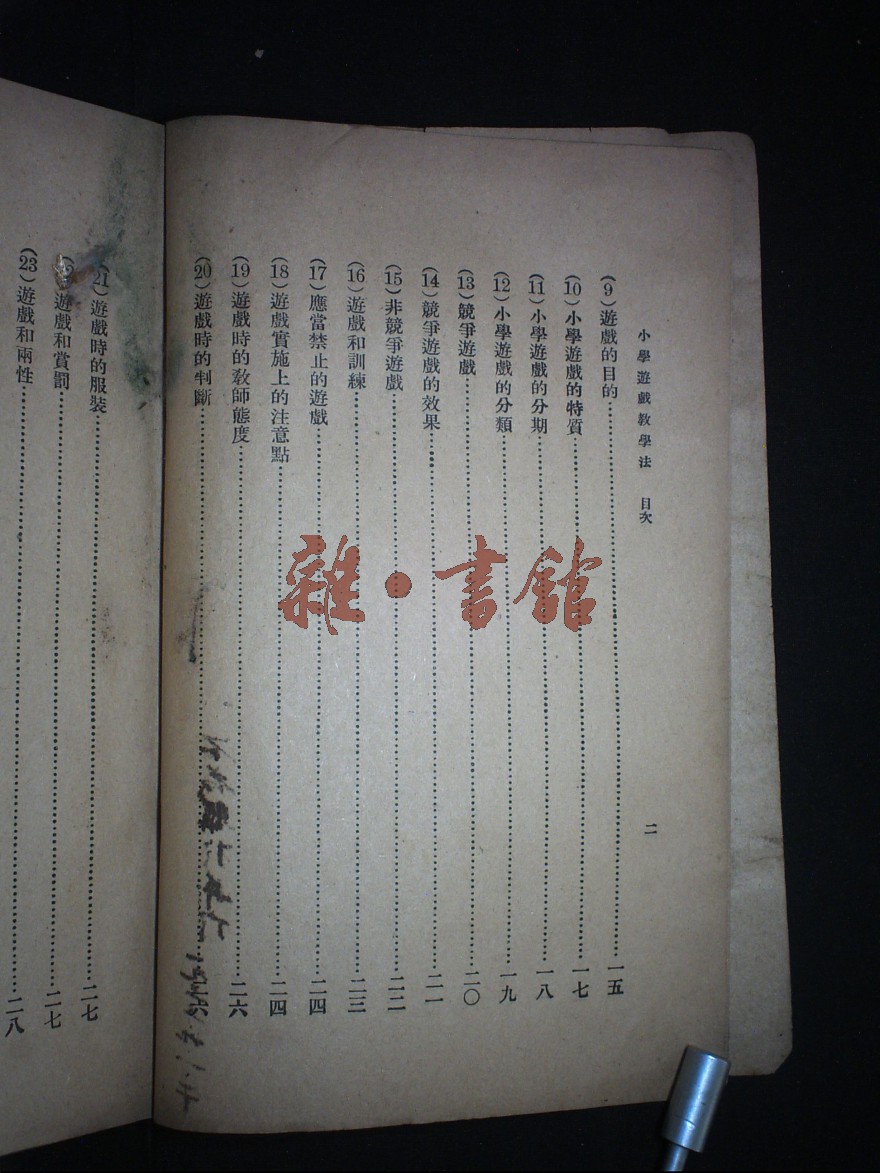 小學遊戲教學法　目次　二
(9)遊戲的目的……一五
(10)小學遊戲的特質……一七
(11)小學遊戲的分期……一八
(12)小學遊戲的分類……一九
(13)競爭遊戲……二〇
(14)競爭遊戲的效果……二一
(15)非競爭遊戲……二二
(16)遊戲和訓練……二三
(17)應當禁止的遊戲……二四
(18)遊戲實施上的注意點……二四
(19)遊戲時的敎師態度……二六
(20)遊戲時的判斷……
(21)遊戲時的服裝……二七
遊戲和賞罰……二七
(23)遊戲和兩性……二八
雜·書館